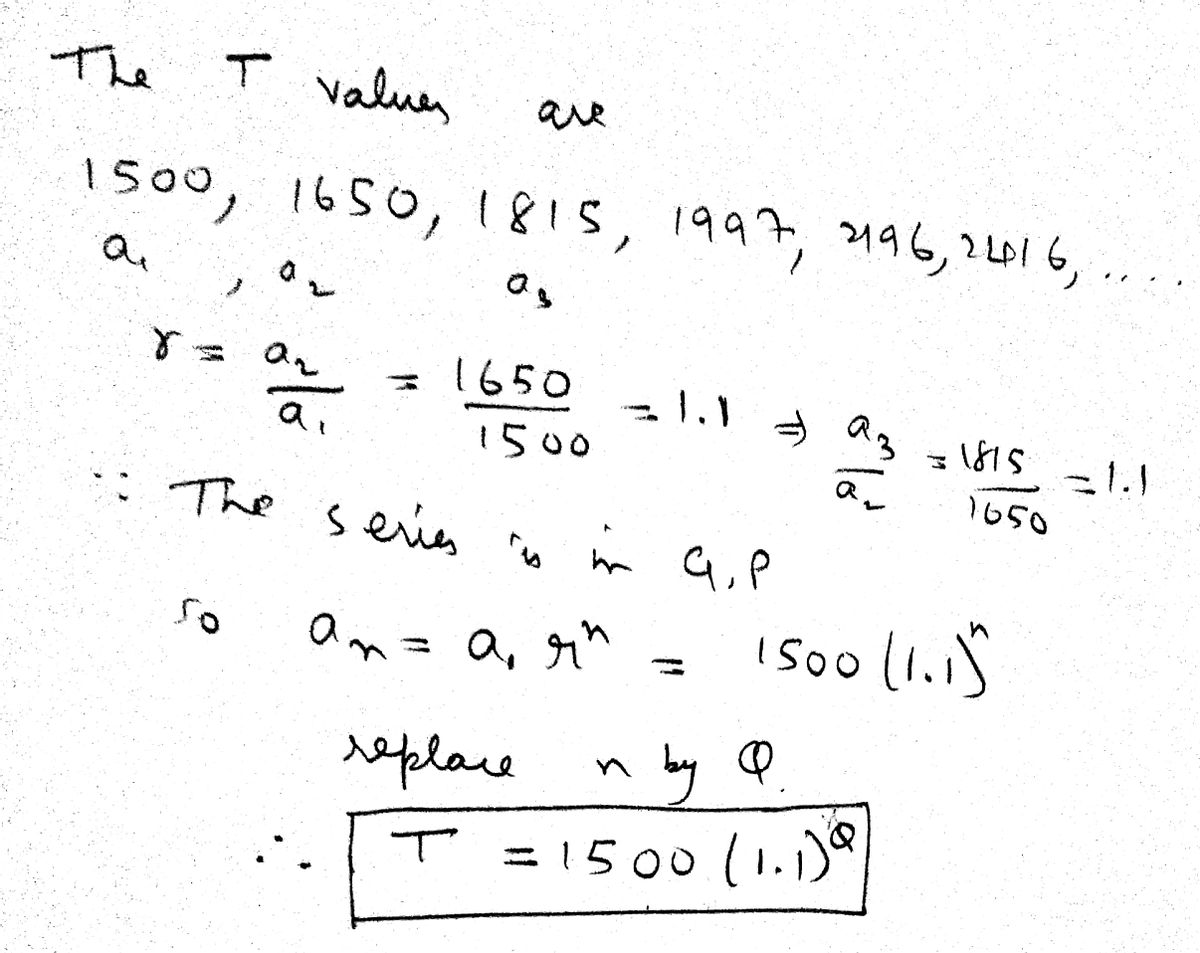 The T values are
1500, 1650, 1815, 1997, 2196, 2416, .....
a₁ , a₂ a₃
r = a₂/a₁ = 1650/1500 = 1.1 ⇒ a₃/a₂ = 1815/1650 = 1.1
∵ The series is in G.P
so aₙ = a₁ rⁿ = 1500 (1.1)ⁿ
replace n by Q.
∴ T = 1500 (1.1)^Q